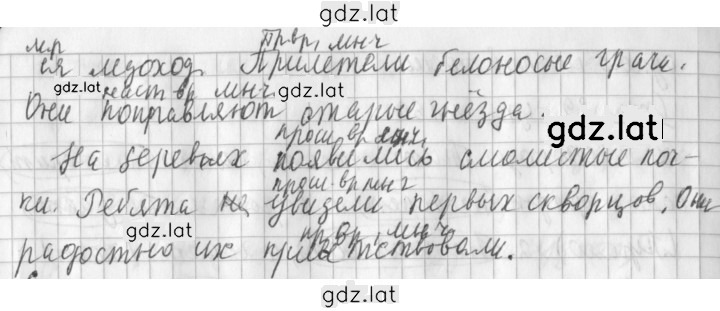 gdz.lat
м.р првр, мнч
ся ледоход. Прилетели белоносые грачи.
gdz.lat наст вр мнч gdz.lat
Они поправляют старые гнёзда.
gdz.lat
прош. вр мнч
На деревьях появились смолистые поч-
прош. вр мнч
ки. Ребята увидели первых скворцов. Они
gdz.lat пр вр, мнч
радостно их приветствовали.
gdz.lat